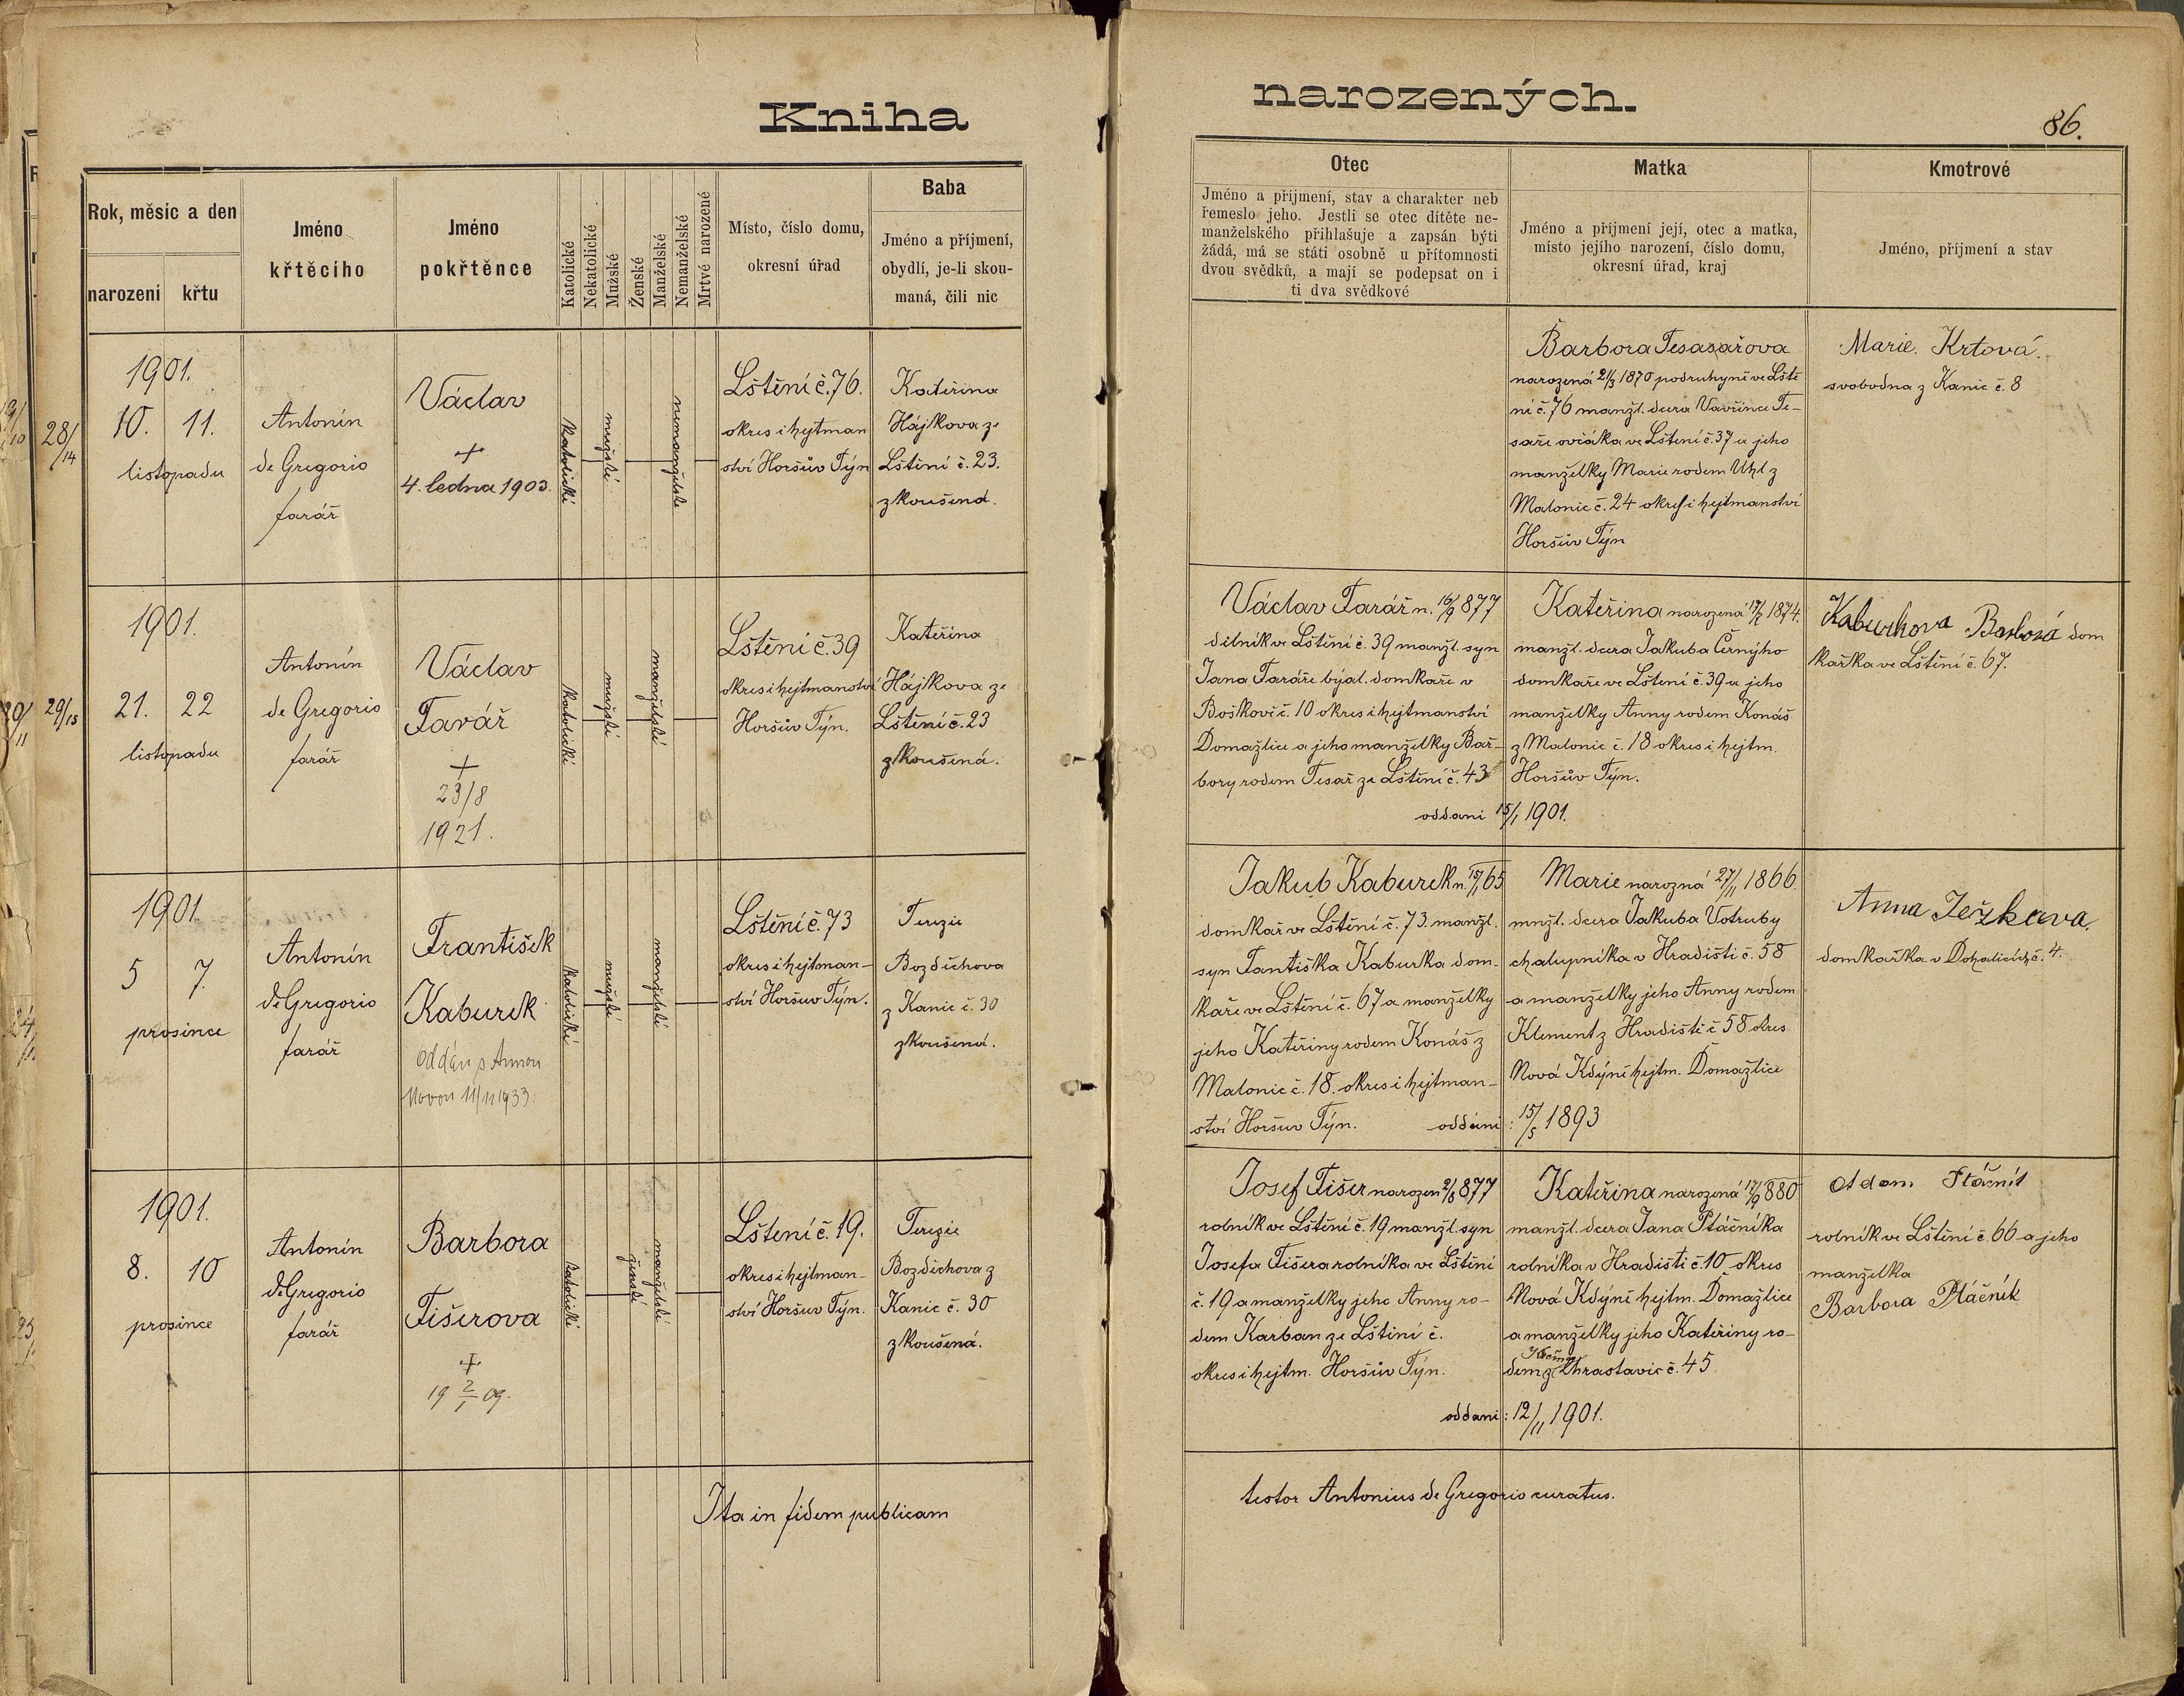 Kniha
narozených.
86.
Rok, měsíc a den
narození
křtu
Jméno
křtěcího
Jméno
pokřtěnce
Katolické
Nekatolické
Mužské
Ženské
Manželské
Nemanželské
Mrtvě narozené
Místo, číslo domu,
okresní úřad
Baba
Jméno a příjmení,
obydlí, je-li skou-
maná, čili nic
Otec
Jméno a příjmení, stav a charakter neb
řemeslo jeho. Jestli se otec dítěte ne-
manželského přihlašuje a zapsán býti
žádá, má se státi osobně u přítomnosti
dvou svědků, a mají se podepsat on i
ti dva svědkové
Matka
Jméno a příjmení její, otec a matka,
místo jejího narození, číslo domu,
okresní úřad, kraj
Kmotrové
Jméno, příjmení a stav
28/14
1901.
10. 11.
listopadu
Antonín
de Gregorio
farář
Václav
+
4. ledna 1903.
katolické
mužské
nemanželské
Lštění č. 76.
okres i hejtman
ství Horšův Týn
Kateřina
Hájkova ze
Lštění č. 23.
zkoušená.
Barbora Tesasařova
narozená 21/3 1870 podruhyně ve Lště
ní č. 76 manžl. dcera Vavřince Te-
saře ovčáka ve Lštění č. 37 a jeho
manželky Marie rodem Uhl z
Malonic č. 24 okres i hejtmanství
Horšův Týn
Marie. Krtová.
svobodna z Kanic č. 8
29/15
1901.
21. 22
listopadu
Antonín
de Gregorio
farář
Václav
Farář
+
23/8
1921.
katolické
mužské
manželské
Lštění č. 39
okres i hejtmanství
Horšův Týn.
Kateřina
Hájkova ze
Lštění č. 23
zkoušená.
Václav Farář n. 16/9 877
dělník ve Lštění č. 39 manžl. syn
Jana Faráře býval. domkaře v
Boškově č. 10 okres i hejtmanství
Domažlice a jeho manželky Bar-
bory rodem Tesař ze Lštění č. 43
oddani 15/1 1901.
Kateřina narozená 17/7 1874.
manžl. dcera Jakuba Černýho
domkaře ve Lštění č. 39 a jeho
manželky Anny rodem Konáš
z Malonic č. 18 okres i hejtm.
Horšův Týn.
Kaburkova Barbora dom
kařka ve Lštění č. 67.
1901.
5 7.
prosince
Antonín
de Gregorio
farář
František
Kaburek
Oddán s Annou
Novou 11/11 1933.
katolické
mužské
manželské
Lštění č. 73
okres i hejtman-
ství Horšuv Týn.
Terezie
Bozděchova
z Kanic č. 30
zkoušená.
Jakub Kaburek n. 15/1 65
domkař ve Lštění č. 73. manžl.
syn Fantiška Kaburka dom-
kaře ve Lštění č. 67 a manželky
jeho Kateřiny rodem Konáš z
Malonic č. 18. okres i hejtman-
ství Horšuv Týn. oddáni : 15/5 1893
Marie narozná 27/11 1866.
mnžl. dcera Jakuba Votruby
chalupníka v Hradišti č. 58
a manželky jeho Anny rodem
Klement z Hradiště č 58 okres
Nová Kdýně hejtm. Domažlice
Anna Ježkova.
domkařka v Dohalicích č. 4.
1901.
8. 10
prosince
Antonín
de Gregorio
farář
Barbora
Fišerova
+
19 2/1 09.
katolické
ženské
manželské
Lštení č. 19.
okres i hejtman-
ství Horšuv Týn.
Terezie
Bozděchova z
Kanic č. 30
zkoušená.
Josef Fišer narozen 2/8 877
rolník ve Lštění č. 19 manžl. syn
Josefa Fišera rolníka ve Lštění
č. 19 a manželky jeho Anny ro-
dem Karban ze Lštění č.
okres i hejtm. Horšův Týn.
oddani : 12/11 1901.
Kateřina narozená 17/9 880
manžl. dcera Jana Ptáčníka
rolníka v Hradišti č. 10 okres
Nová Kdýně hejtm. Domažlice
a manželky jeho Kateřiny ro-
dem z Chrastavic č. 45
Adam Ptáčník
rolník ve Lštění č. 66 a jeho
manželka
Barbora Ptáčník
Ita in fidem publicam
testor Antonius de Gregorio curatus.